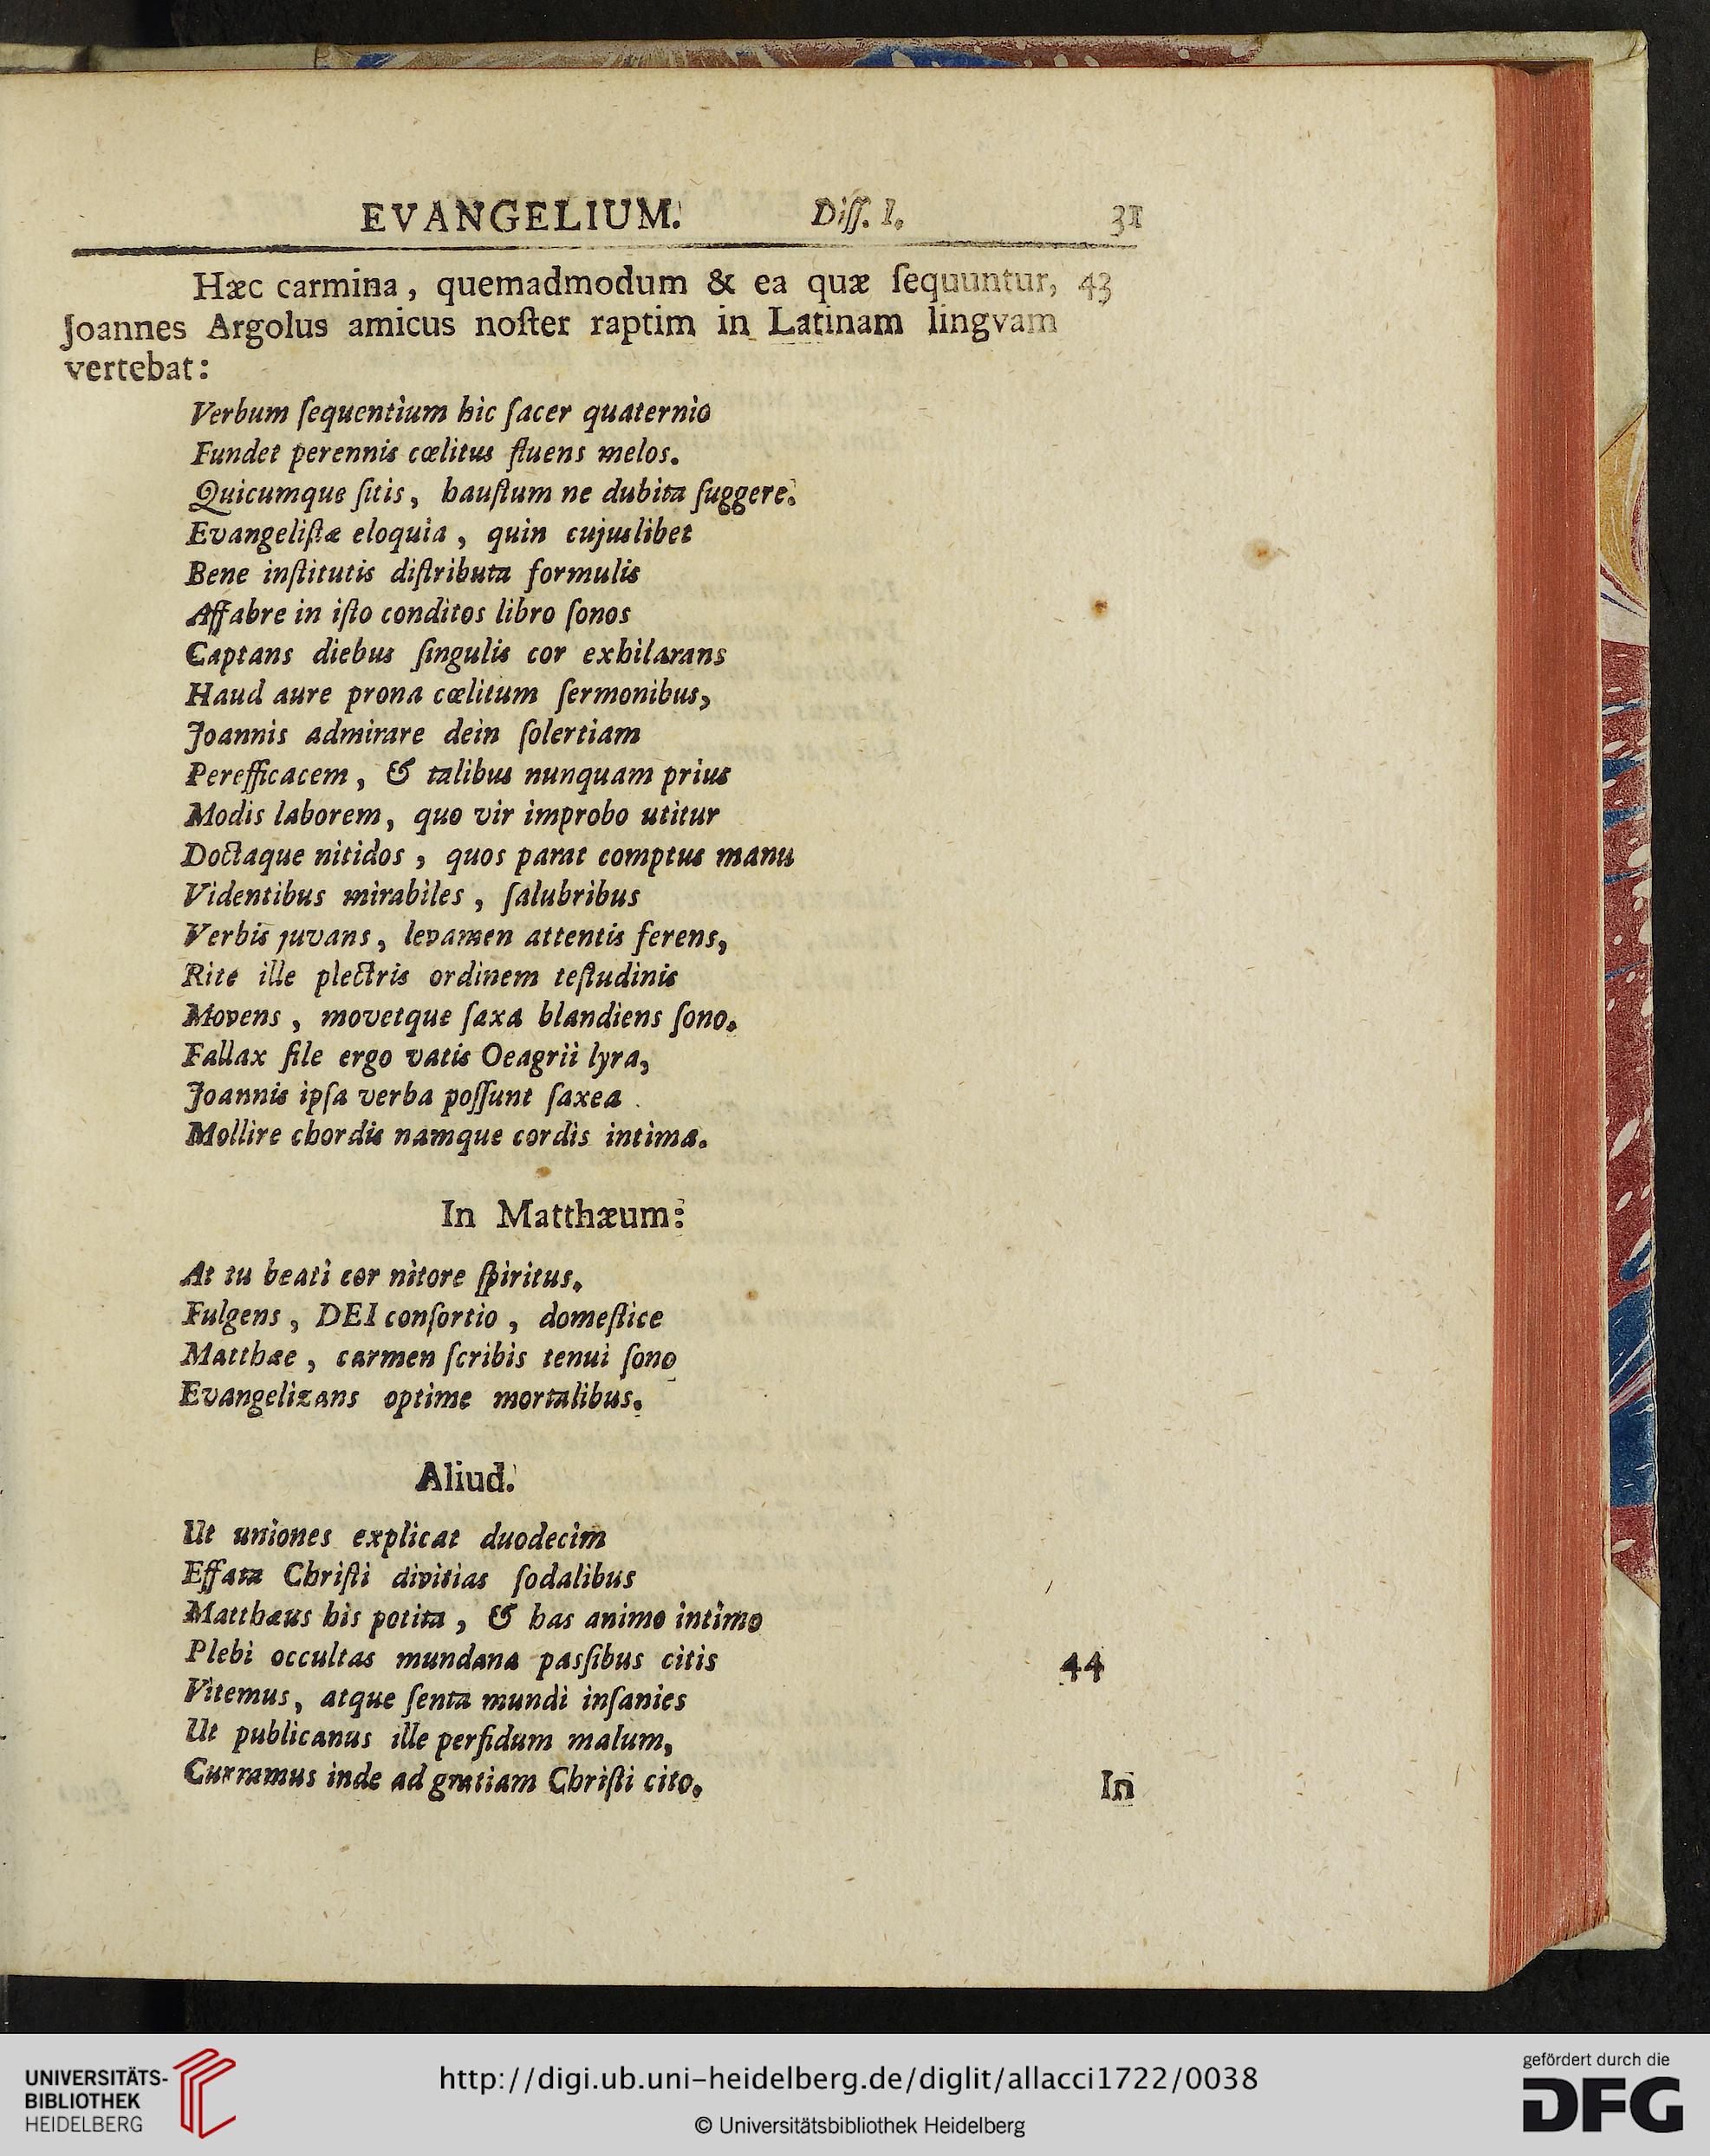 EVANGELIUM. Diſſ. I. 31
Hæc carmina, quemadmodum & ea quæ ſequuntur, 43
Joannes Argolus amicus noſter raptim in Latinam lingvam
vertebat:
Verbum ſequentium hic ſacer quaternio
Fundet perennis cœlitus fluens melos.
Quicumque ſitis, hauſtum ne dubita ſuggere.
Evangeliſtæ eloquia, quin cujuslibet
Bene inſtitutis diſtributa formulis
Affabre in iſto conditos libro ſonos
Captans diebus ſingulis cor exhilarans
Haud aure prona cœlitum ſermonibus,
Joannis admirare dein ſolertiam
Perefficacem, & talibus nunquam prius
Modis laborem, quo vir improbo utitur
Doctaque nitidos, quos parat comptus manu
Videntibus mirabiles, ſalubribus
Verbis juvans, levamen attentis ferens,
Rite ille plectris ordinem teſtudinis
Movens, movetque ſaxa blandiens ſono.
Fallax ſile ergo vatis Oeagrii lyra,
Joannis ipſa verba poſſunt ſaxea
Mollire chordis namque cordis intima.
In Matthæum:
At tu beati cor nitore ſpiritus.
Fulgens, DEI conſortio, domeſtice
Matthæe, carmen ſcribis tenui ſono
Evangelizans optime mortalibus.
Aliud.
Ut uniones explicat duodecim
Effata Chriſti divitias ſodalibus
Matthæus his potita, & has animo intimo
Plebi occultas mundana pasſibus citis 44
Vitemus, atque ſenta mundi inſanies
Ut publicanus ille perfidum malum,
Curramus inde ad gratiam Chriſti cito.
In
UNIVERSITÄTS-
BIBLIOTHEK
HEIDELBERG
http://digi.ub.uni-heidelberg.de/diglit/allacci1722/0038
© Universitätsbibliothek Heidelberg
gefördert durch die
DFG